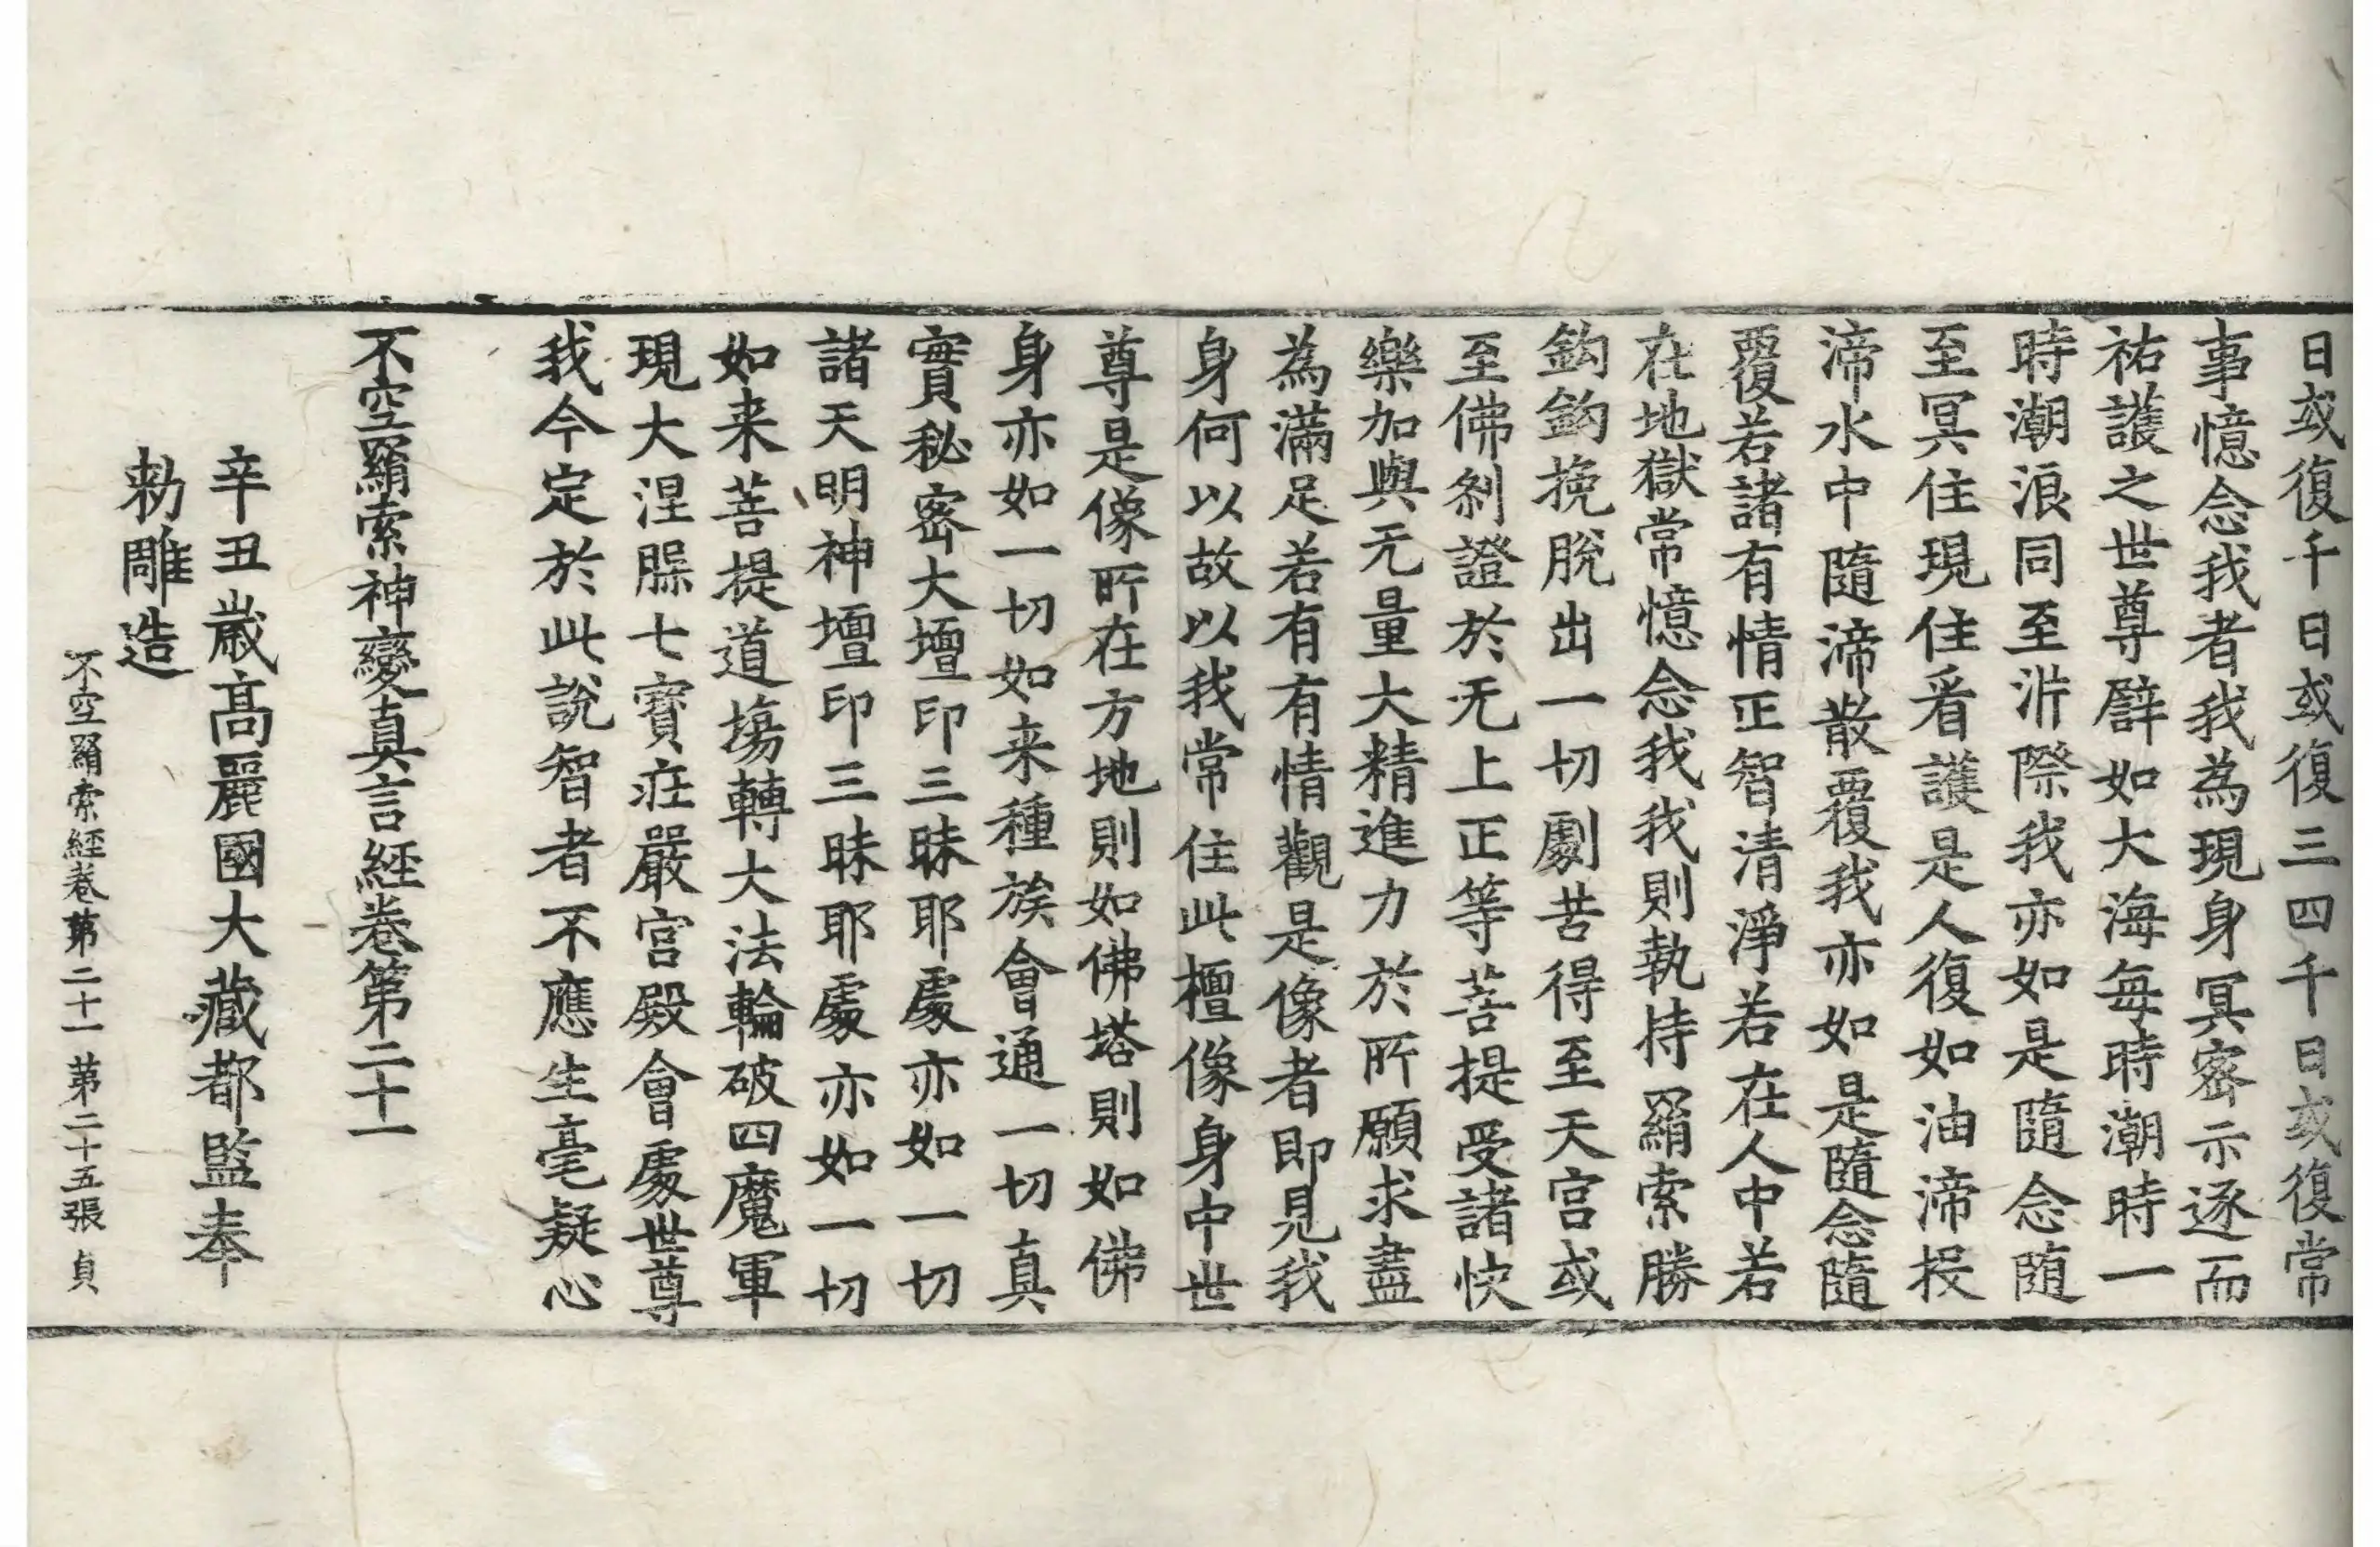 日或復千日或復三四千日或復常
事憶念我者我為現身冥密示逐而
祐護之世尊譬如大海每時潮時一
時潮浪同至泝際我亦如是隨念隨
至冥住現住看護是人復如油渧投
渧水中隨渧散覆我亦如是隨念隨
覆若諸有情正智清淨若在人中若
在地獄常憶念我我則執持羂索勝
鈎鈎挽脫出一切劇苦得至天宮或
至佛刹證於无上正等菩提受諸快
樂加與无量大精進力於所願求盡
為滿足若有有情觀是像者即見我
身何以故以我常住此檀像身中世
尊是像所在方地則如佛塔則如佛
身亦如一切如来種族會通一切真
實秘密大壇印三昧耶處亦如一切
諸天明神壇印三昧耶處亦如一切
如来菩提道場轉大法輪破四魔軍
現大涅槃七寶莊嚴宮殿會處世尊
我今定於此說智者不應生毫疑心
不空羂索神變真言經卷第二十一
辛丑歲高麗國大藏都監奉
勅雕造
不空羂索經卷第二十一 第二十五張 貞